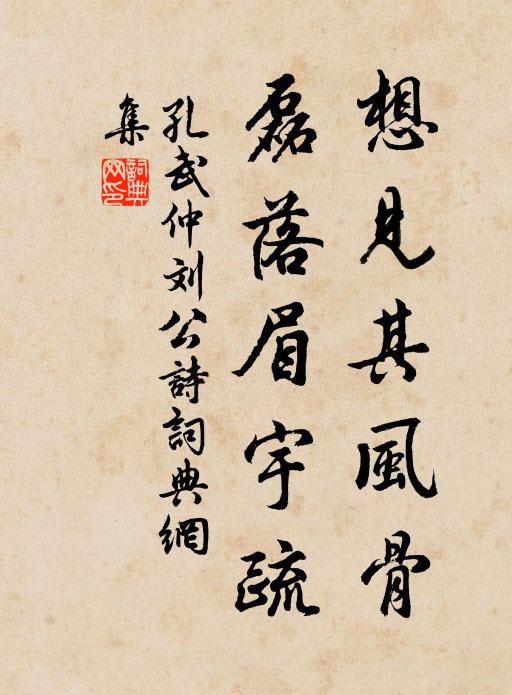 想見其風骨
磊落眉宇疏
孔武仲刘公詩詞典網
集
詞典
网印